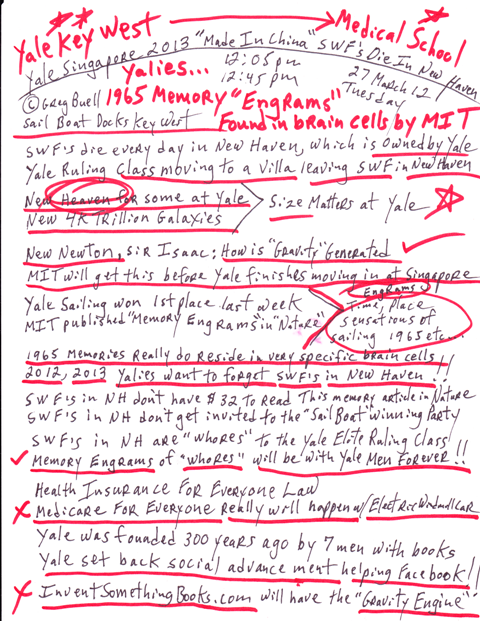 Yale Key West → Medical School
Yale Singapore 2013 "Made In China" SWF's Die In New Haven
Yalies... 12:05pm
12:45pm
27 March 12
Tuesday
© Greg Buell 1965 Memory "Engrams"
Sail Boat Docks Key West Found in brain cells by MIT
SWF's die every day in New Haven, which is owned by Yale
Yale Ruling Class moving to a Villa leaving SWF in New Haven
New Heaven for some at Yale
New 4K Trillion Galaxies
Size Matters at Yale
New Newton, Sir Isaac: How is "Gravity" Generated
MIT will get this before Yale finishes moving in at Singapore
Yale Sailing won 1st place last week
MIT published "Memory Engrams" in "Nature"
Engrams
time, place
sensations of
sailing 1965 etc...
1965 Memories Really do Reside in very specific brain cells
2012, 2013 Yalies want to forget SWF's in New Haven!!
SWF's in NH don't have $32 to Read This memory article in Nature
SWF's in NH don't get invited to the "Sail Boat" winning Party
SWF's in NH are "whores" to the Yale Elite Ruling Class
Memory Engrams of "whores" will be with Yale Men Forever!!
Health Insurance For Everyone Law
Medicare For Everyone Really will happen w/ElectricWindmillCar
Yale was founded 300 years ago by 7 men with books
Yale set back social advancement helping Facebook!!
InventSomethingBooks.com will have the "Gravity Engine"